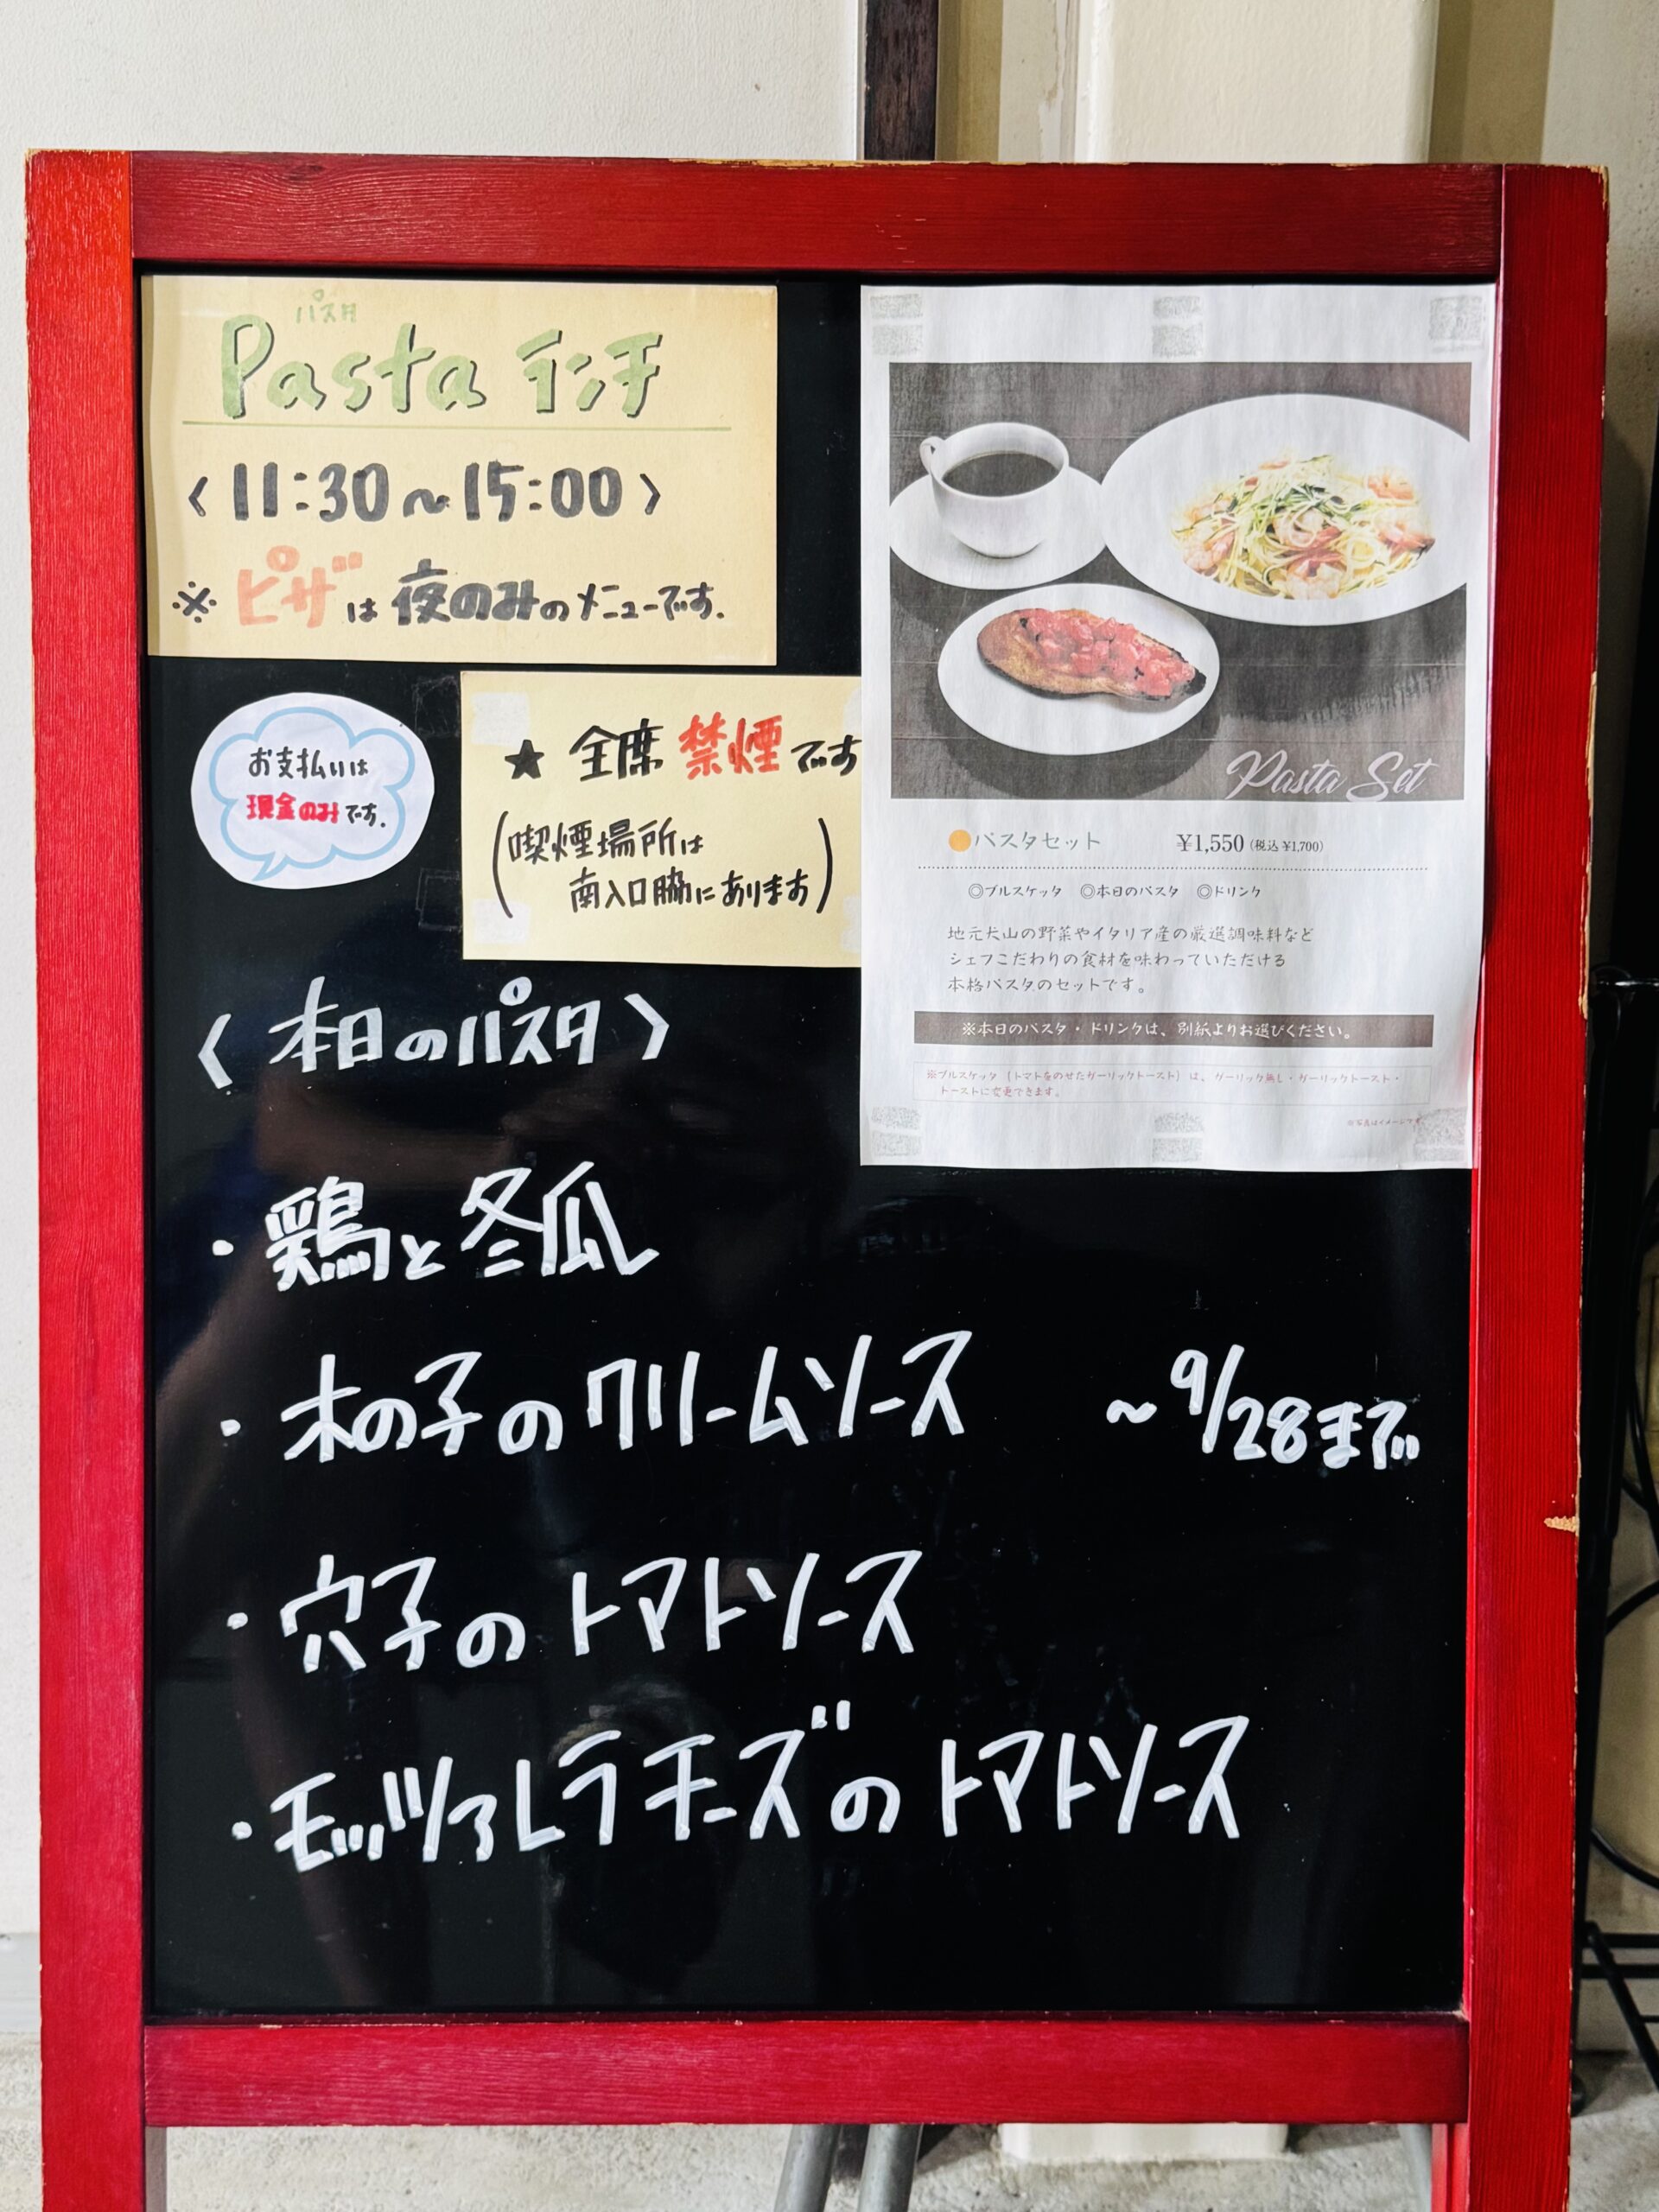 パスタ
Pasta ランチ
〈 11:30～15:00 〉
※ ピザは夜のみのメニューです.
お支払いは
現金のみです.
★ 全席 禁煙です
(喫煙場所は
南入口脇にあります)
Pasta Set
●パスタセット ¥1,550 (税込 ¥1,700)
◎ブルスケッタ ◎本日のパスタ ◎ドリンク
地元犬山の野菜やイタリア産の厳選調味料など
シェフこだわりの食材を味わっていただける
本格パスタのセットです。
※本日のパスタ・ドリンクは、別紙よりお選びください。
※ブルスケッタ (トマトをのせたガーリックトースト) は、ガーリック無し・ガーリックトースト・
トーストに変更できます。
※写真はイメージです
〈 本日のパスタ 〉
・鶏と冬瓜
・木の子のクリームソース ～9/28まで
・穴子のトマトソース
・モッツァレラチーズのトマトソース